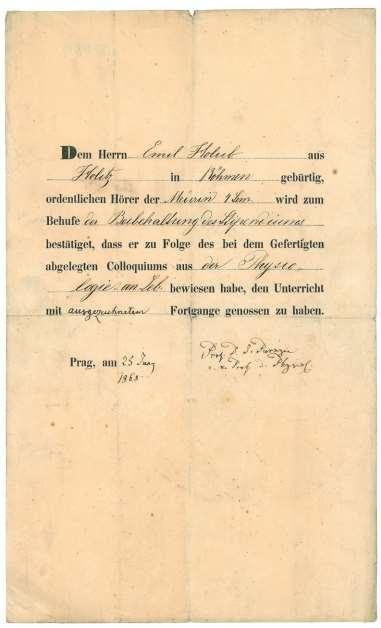 Dem Herrn Emil Holub aus
Holitz in Böhmen gebürtig,
ordentlichen Hörer der Medicin 4 Sem. wird zum
Behufe der Beibehaltung des Stipendiums
bestätiget, dass er zu Folge des bei dem Gefertigten
abgelegten Colloquiums aus der Physio-
logie bewiesen habe, den Unterricht
mit ausgezeichnetem Fortgange genossen zu haben.
Prag, am 25 Prof. J. Purkyně
Prof. d. Physiol.